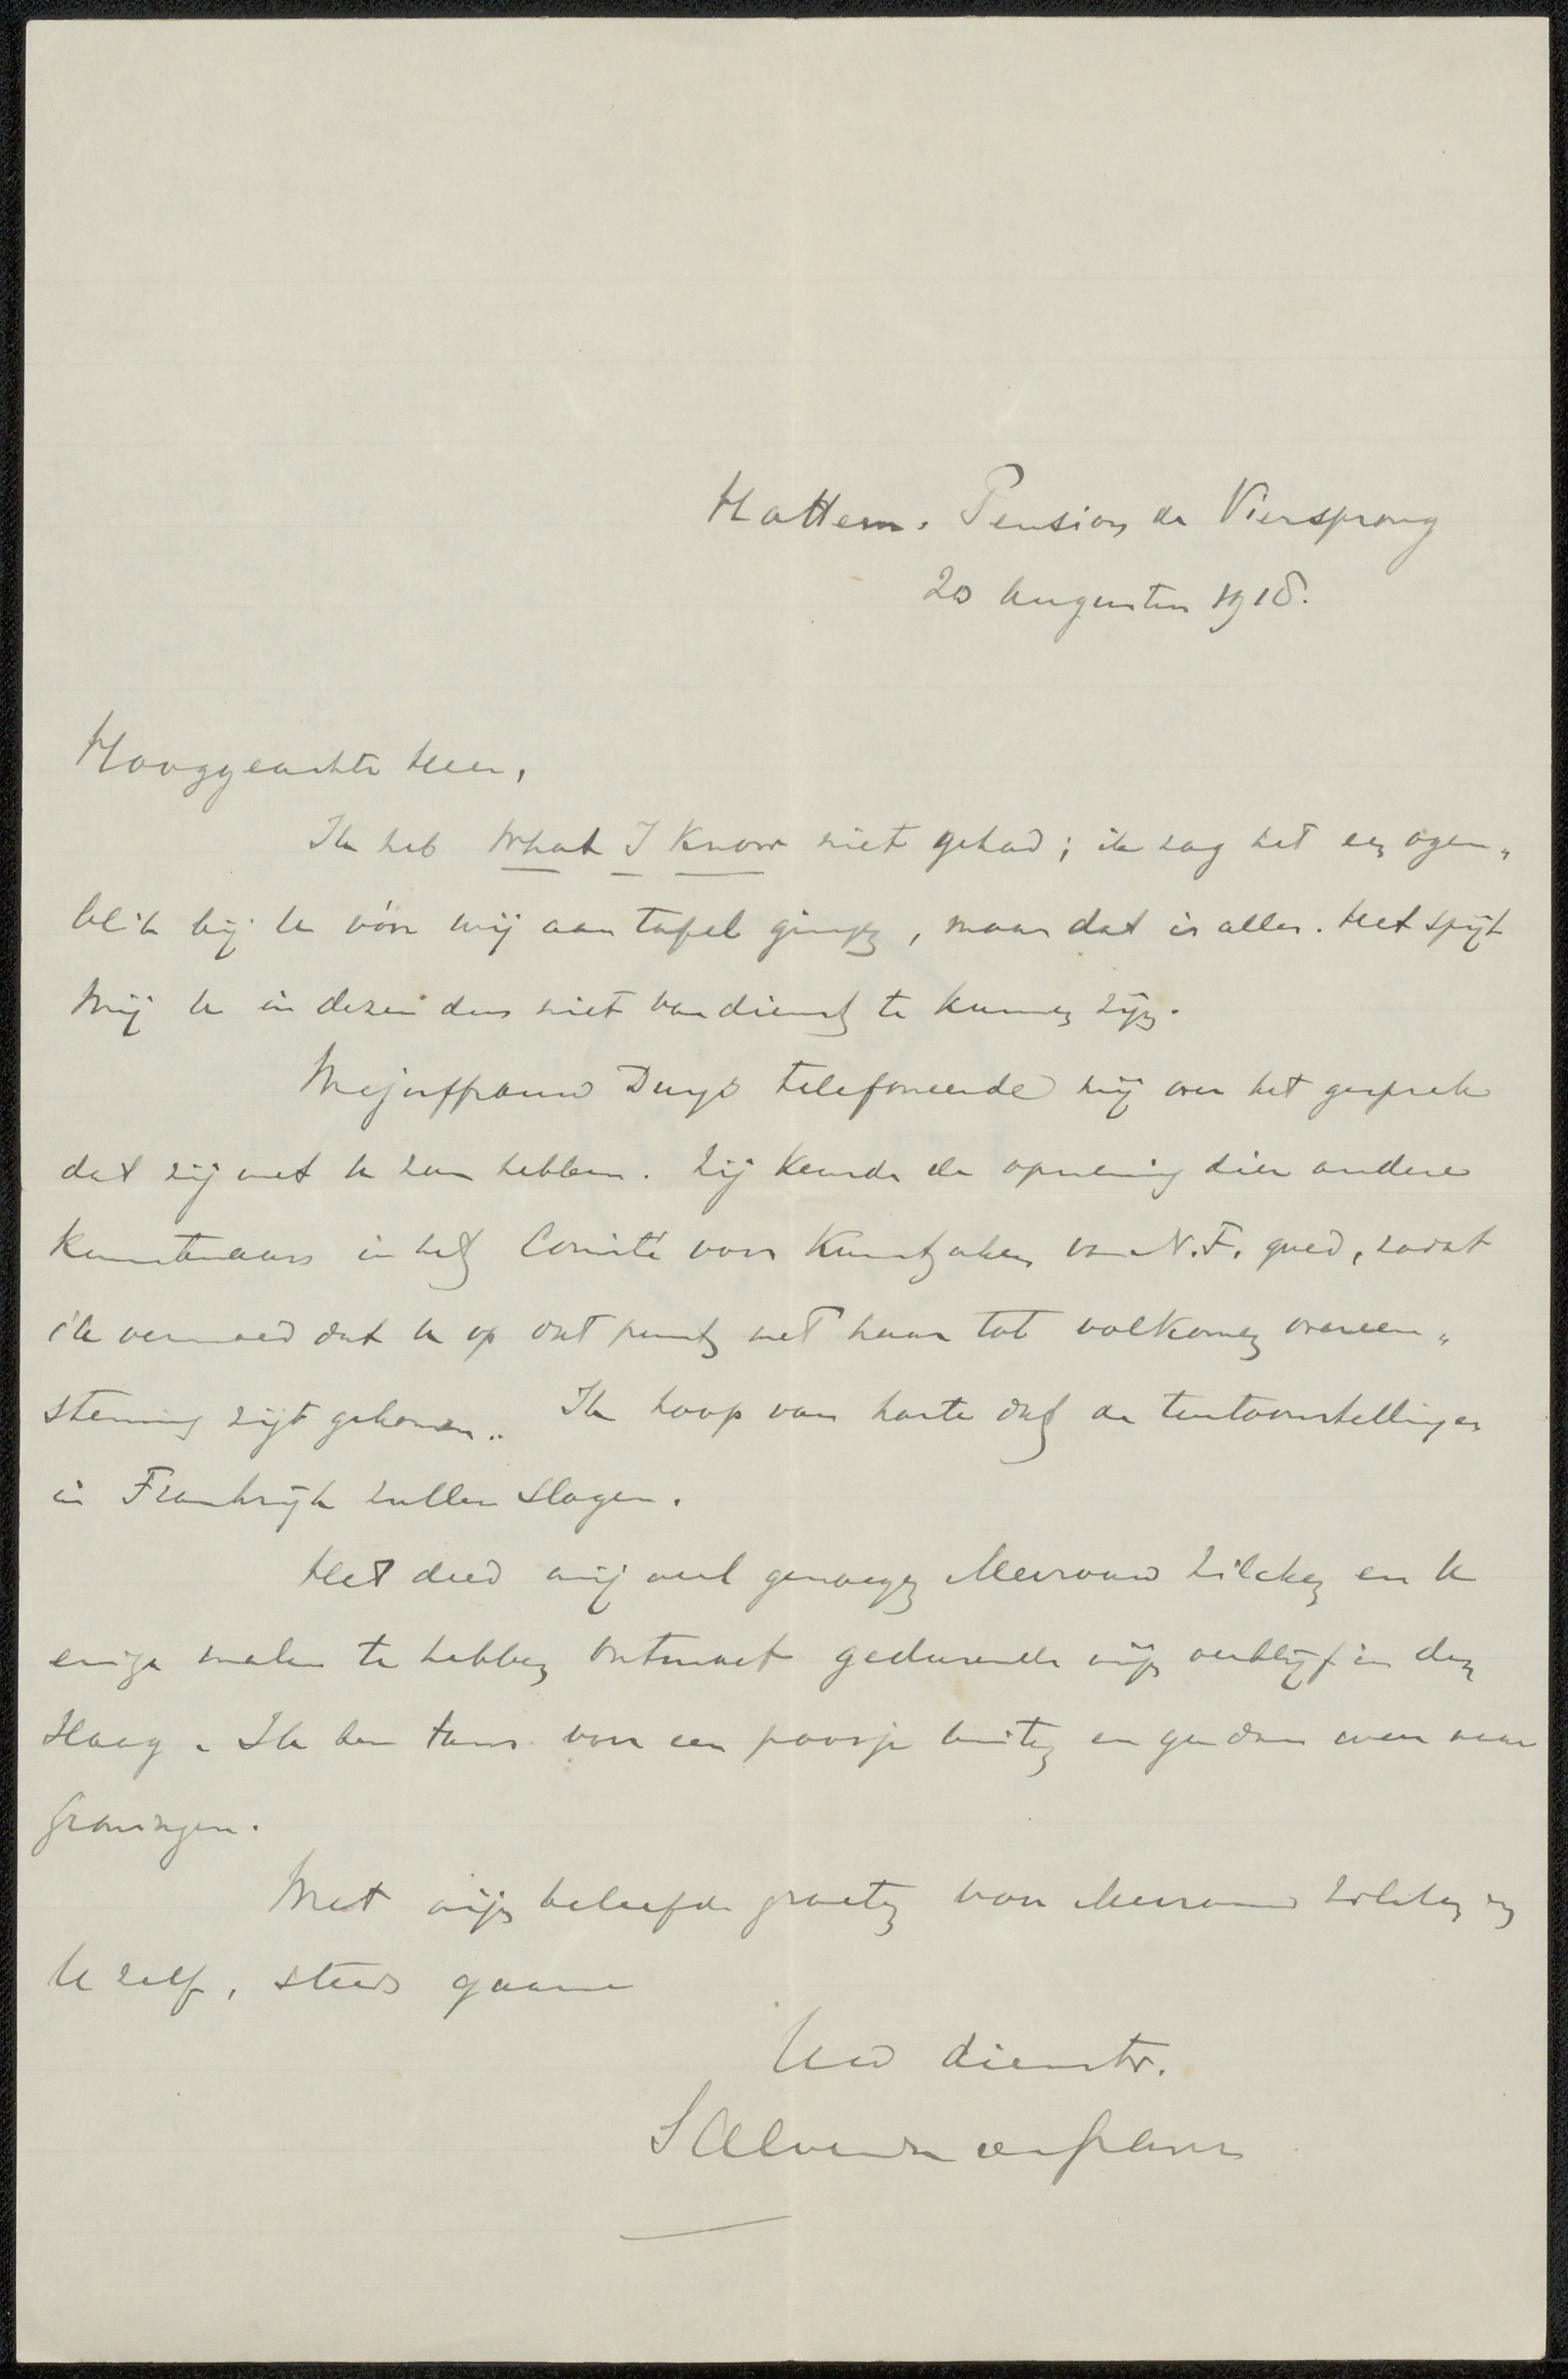 Hattem. Pension de Viersprong
20 Augustus 1918.
Hooggeachte Heer,
Ik heb What I Know niet gehad; ik zag het een ogen„
blik bij U vóór wij aan tafel gingen, maar dat is alles. Het spijt
mij U in dezen dus niet van dienst te kunnen zijn.
Mejuffrouw Duys telefoneerde mij over het gesprek
dat zij met U zou hebben. Zij keurde de opneming dier andere
kunstenaars in het Comité voor Kunstzaken van N.F. goed, zodat
ik vermoed dat U op dat punt met haar tot volkomen overeen„
stemming zijt gekomen. Ik hoop van harte dat de tentoonstellingen
in Frankrijk zullen slagen.
Het deed mij veel genoegen Mevrouw Zilcken en U
enige malen te hebben ontmoet gedurende mijn verblijf in den
Haag. Ik ben tans voor een poosje buiten en ga dan weer naar
Groningen.
Met mijn beleefde groeten voor Mevrouw Zilcken en
U zelf, steeds gaarne
Uw dienstv.